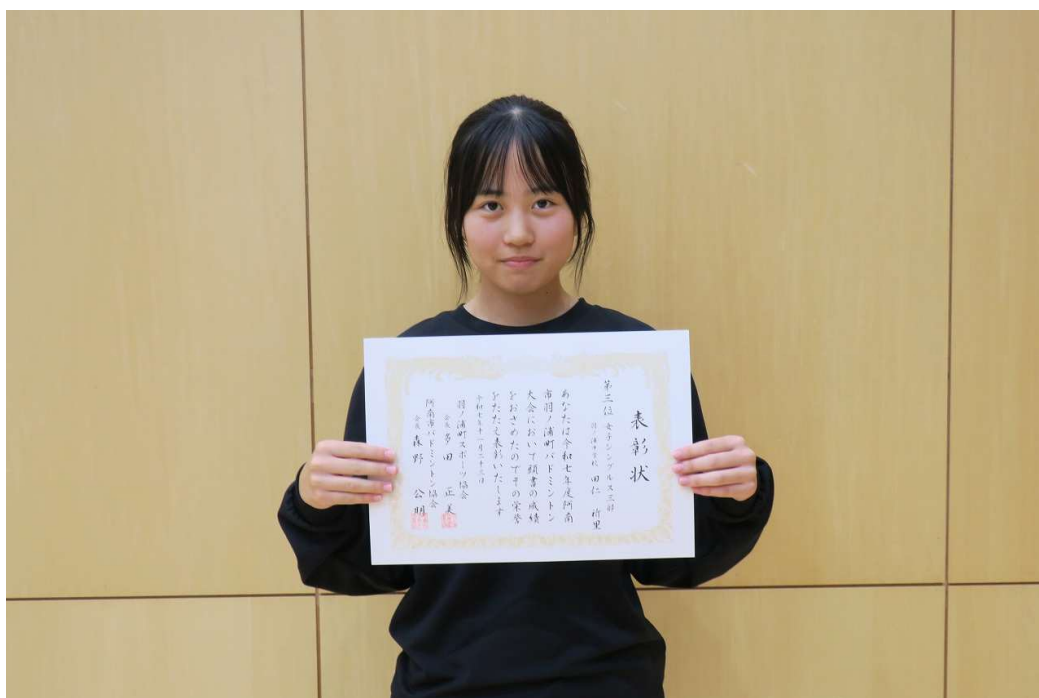 表彰状
第三位 女子シングルス三部
田仁 祈里
あなたは令和七年度阿南
市羽ノ浦町バドミントン
大会において頭書の成績
をおさめたのでその栄誉
をたたえ表彰いたします
令和七年十一月二十三日
羽ノ浦町スポーツ協会
会長 多田 正美
阿南市バドミントン協会
会長 森野 公明